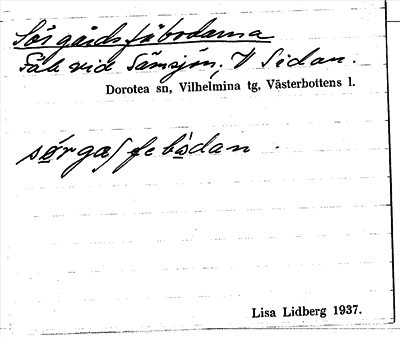 Sörgårdsfäbodarna
Fäb vid Sämsjön, V Sidan.
Dorotea sn, Vilhelmina tg, Västerbottens l.
sørgaʃfebòdan.
Lisa Lidberg 1937.